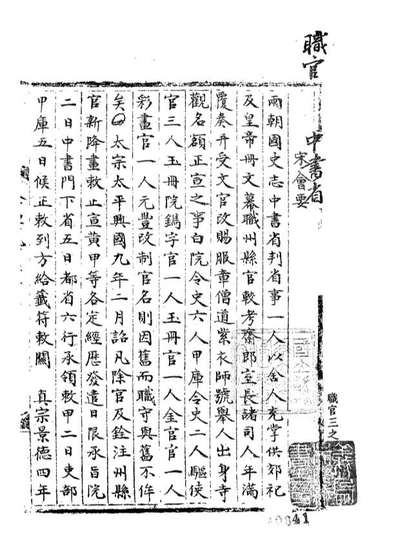 職官
中書省
宋會要
兩朝國史志中書省判省事一人以舍人充掌供郊祀
及皇帝冊文幕職州縣官敕考齋郎室長諸司人年滿
覆奏并受文官改賜服章僧道紫衣師號舉人出身寺
觀名額正宣之事白院令史六人甲庫令史二人驅使
官三人玉冊院鐫字官一人玉冊官二人金官官一人
彩畫官一人元豐改制官名則因舊而職守與舊不侔
矣 太宗太平興國九年二月詔凡除官及銓注州縣
官新降畫敕止宣黃甲等各定經歷發遣日限承旨院
二日中書門下省五日都省六行承領敕甲二日吏部
甲庫五日候正敕到方給籤符敕關 真宗景德四年
職官三之